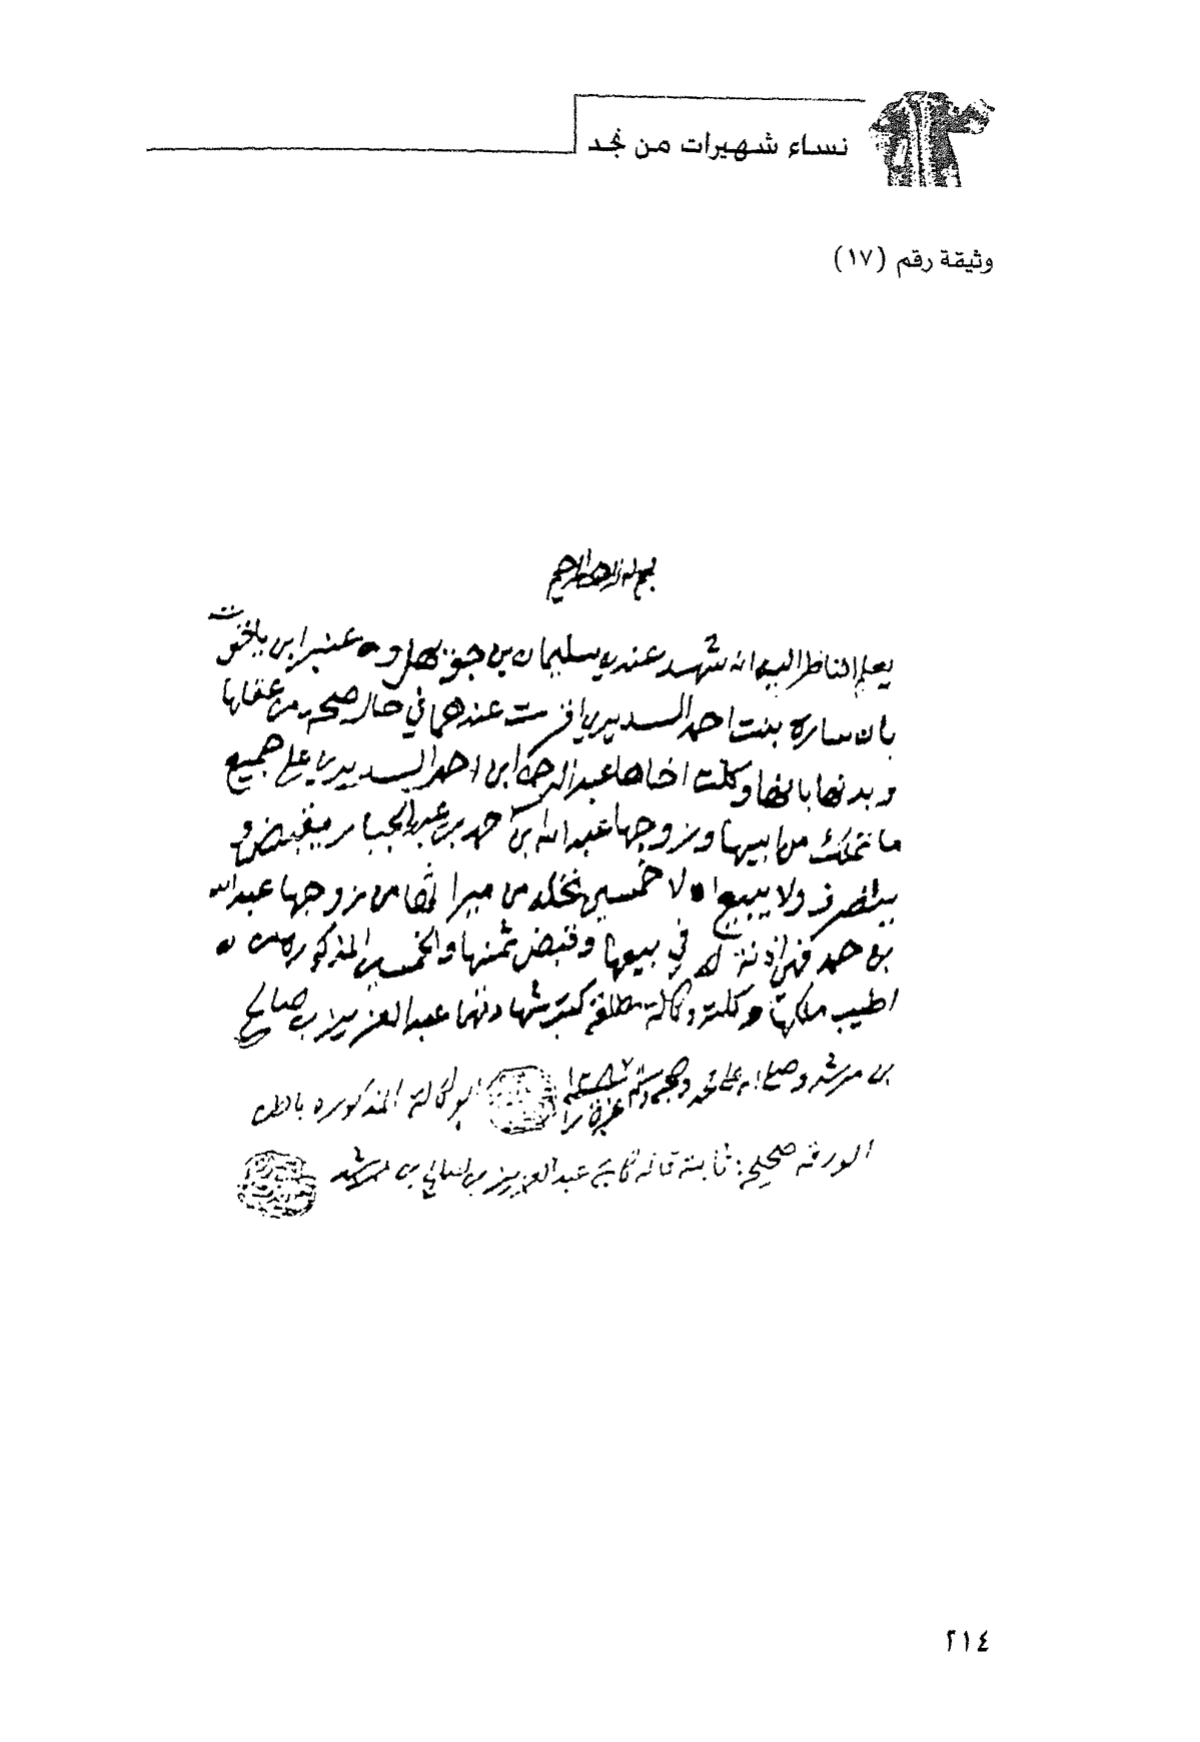 نساء شهيرات من نجد
وثيقة رقم (١٧)
بسم الله الرحمن الرحيم
يعلم الناظر اليه انه شهد عندي سليمان بن وعنبر ابن ياخوت
بان ساره بنت احمد السديري اقرت عندهما في حال صحة من عقلها
وبدنها بانها وكلت اخاها عبد الرحمن ابن احمد السديري على جميع
ما تملك من ابيها وزوجها عبد الله بن حمد بن عبد الجبار يقبض و
يتصرف ولا يبيع الا خمسين نخله من ميراثها من زوجها عبد الله
بن حمد فهي اذنة له في بيعها وقبض ثمنها والخمسين المذكوره من
اطيب ملكها وكلته وكالة مطلقة كتب شهادتهما عبد العزيز بن صالح
بن مرشد وصلى الله على محمد وصحبه وسلم الوكالة المذكوره باطن
الورقه صحيحة ثابتة قاله كاتبه عبد العزيز بن صالح بن مرشد
٢١٤